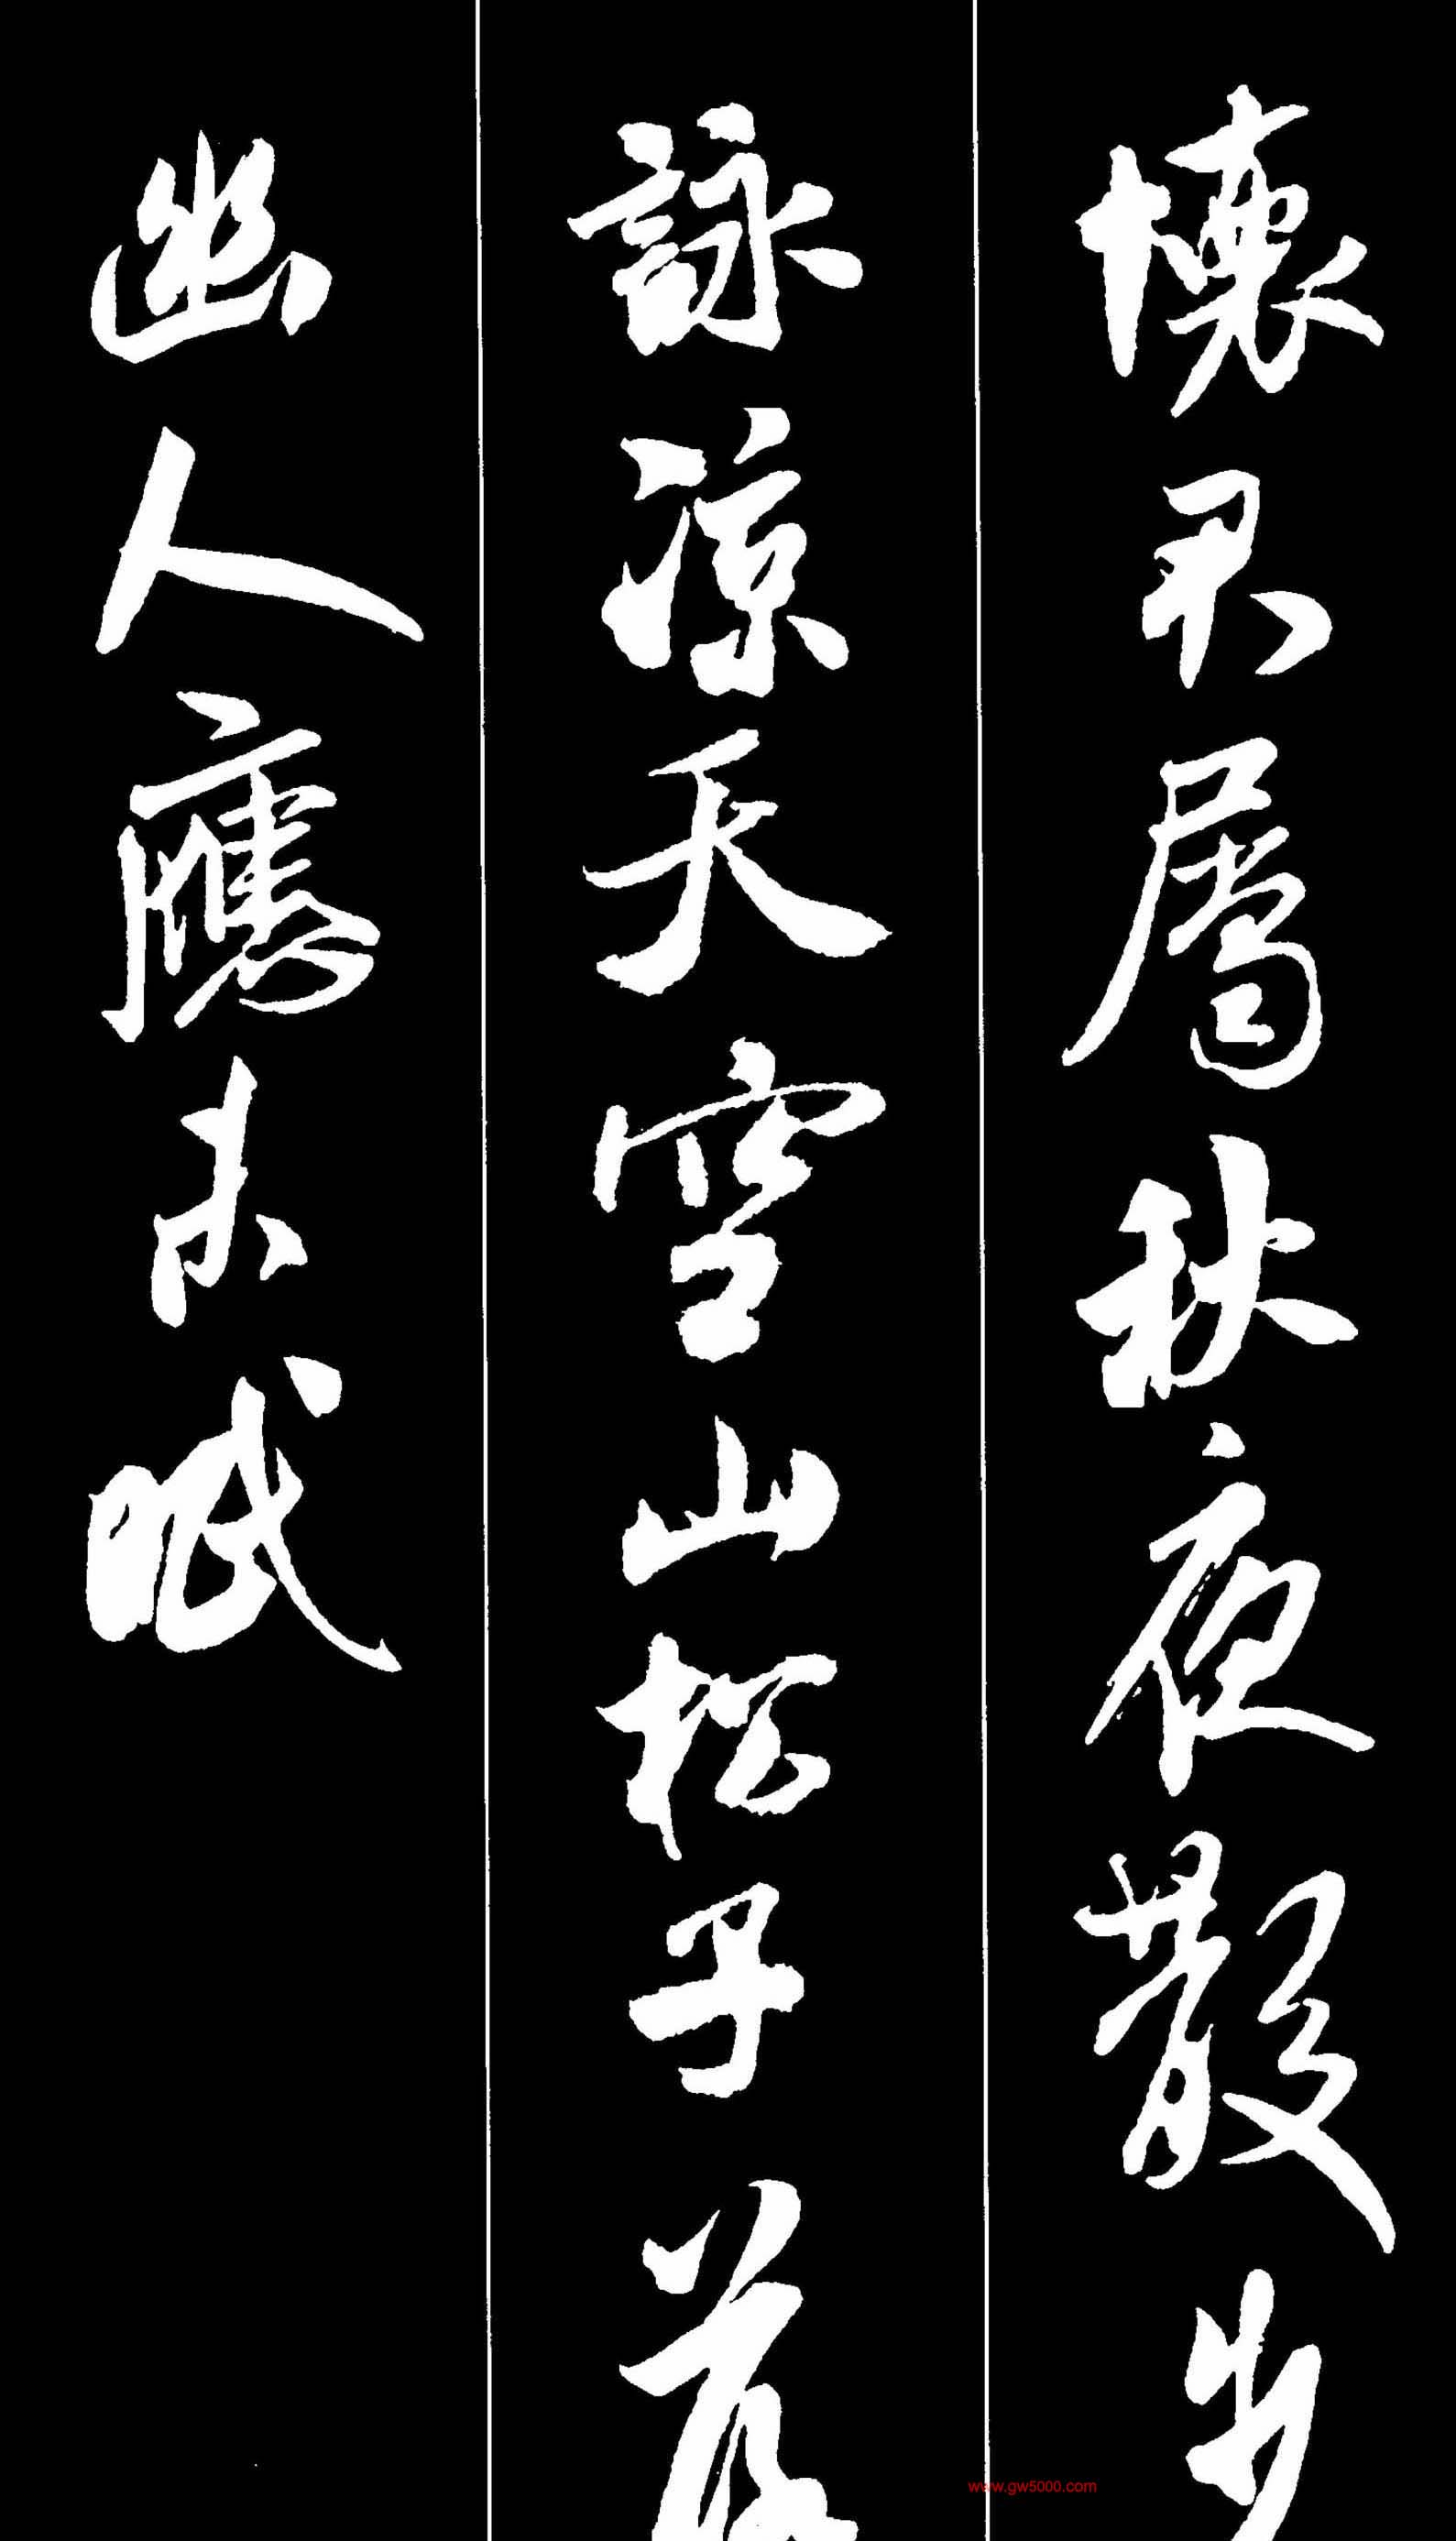 懷君屬秋夜散步
詠涼天空山松子落
幽人應未眠
www.gw5000.com